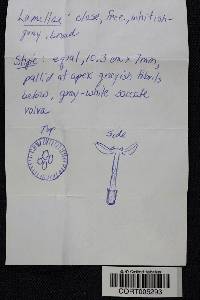 Lamellae: close, free, whitish-
gray, broad
Stipe: equal, 10.3 cm x 7mm,
pallid at apex grayish fibrils
below, gray-white saccate
volva
Top
Side
CORT005293